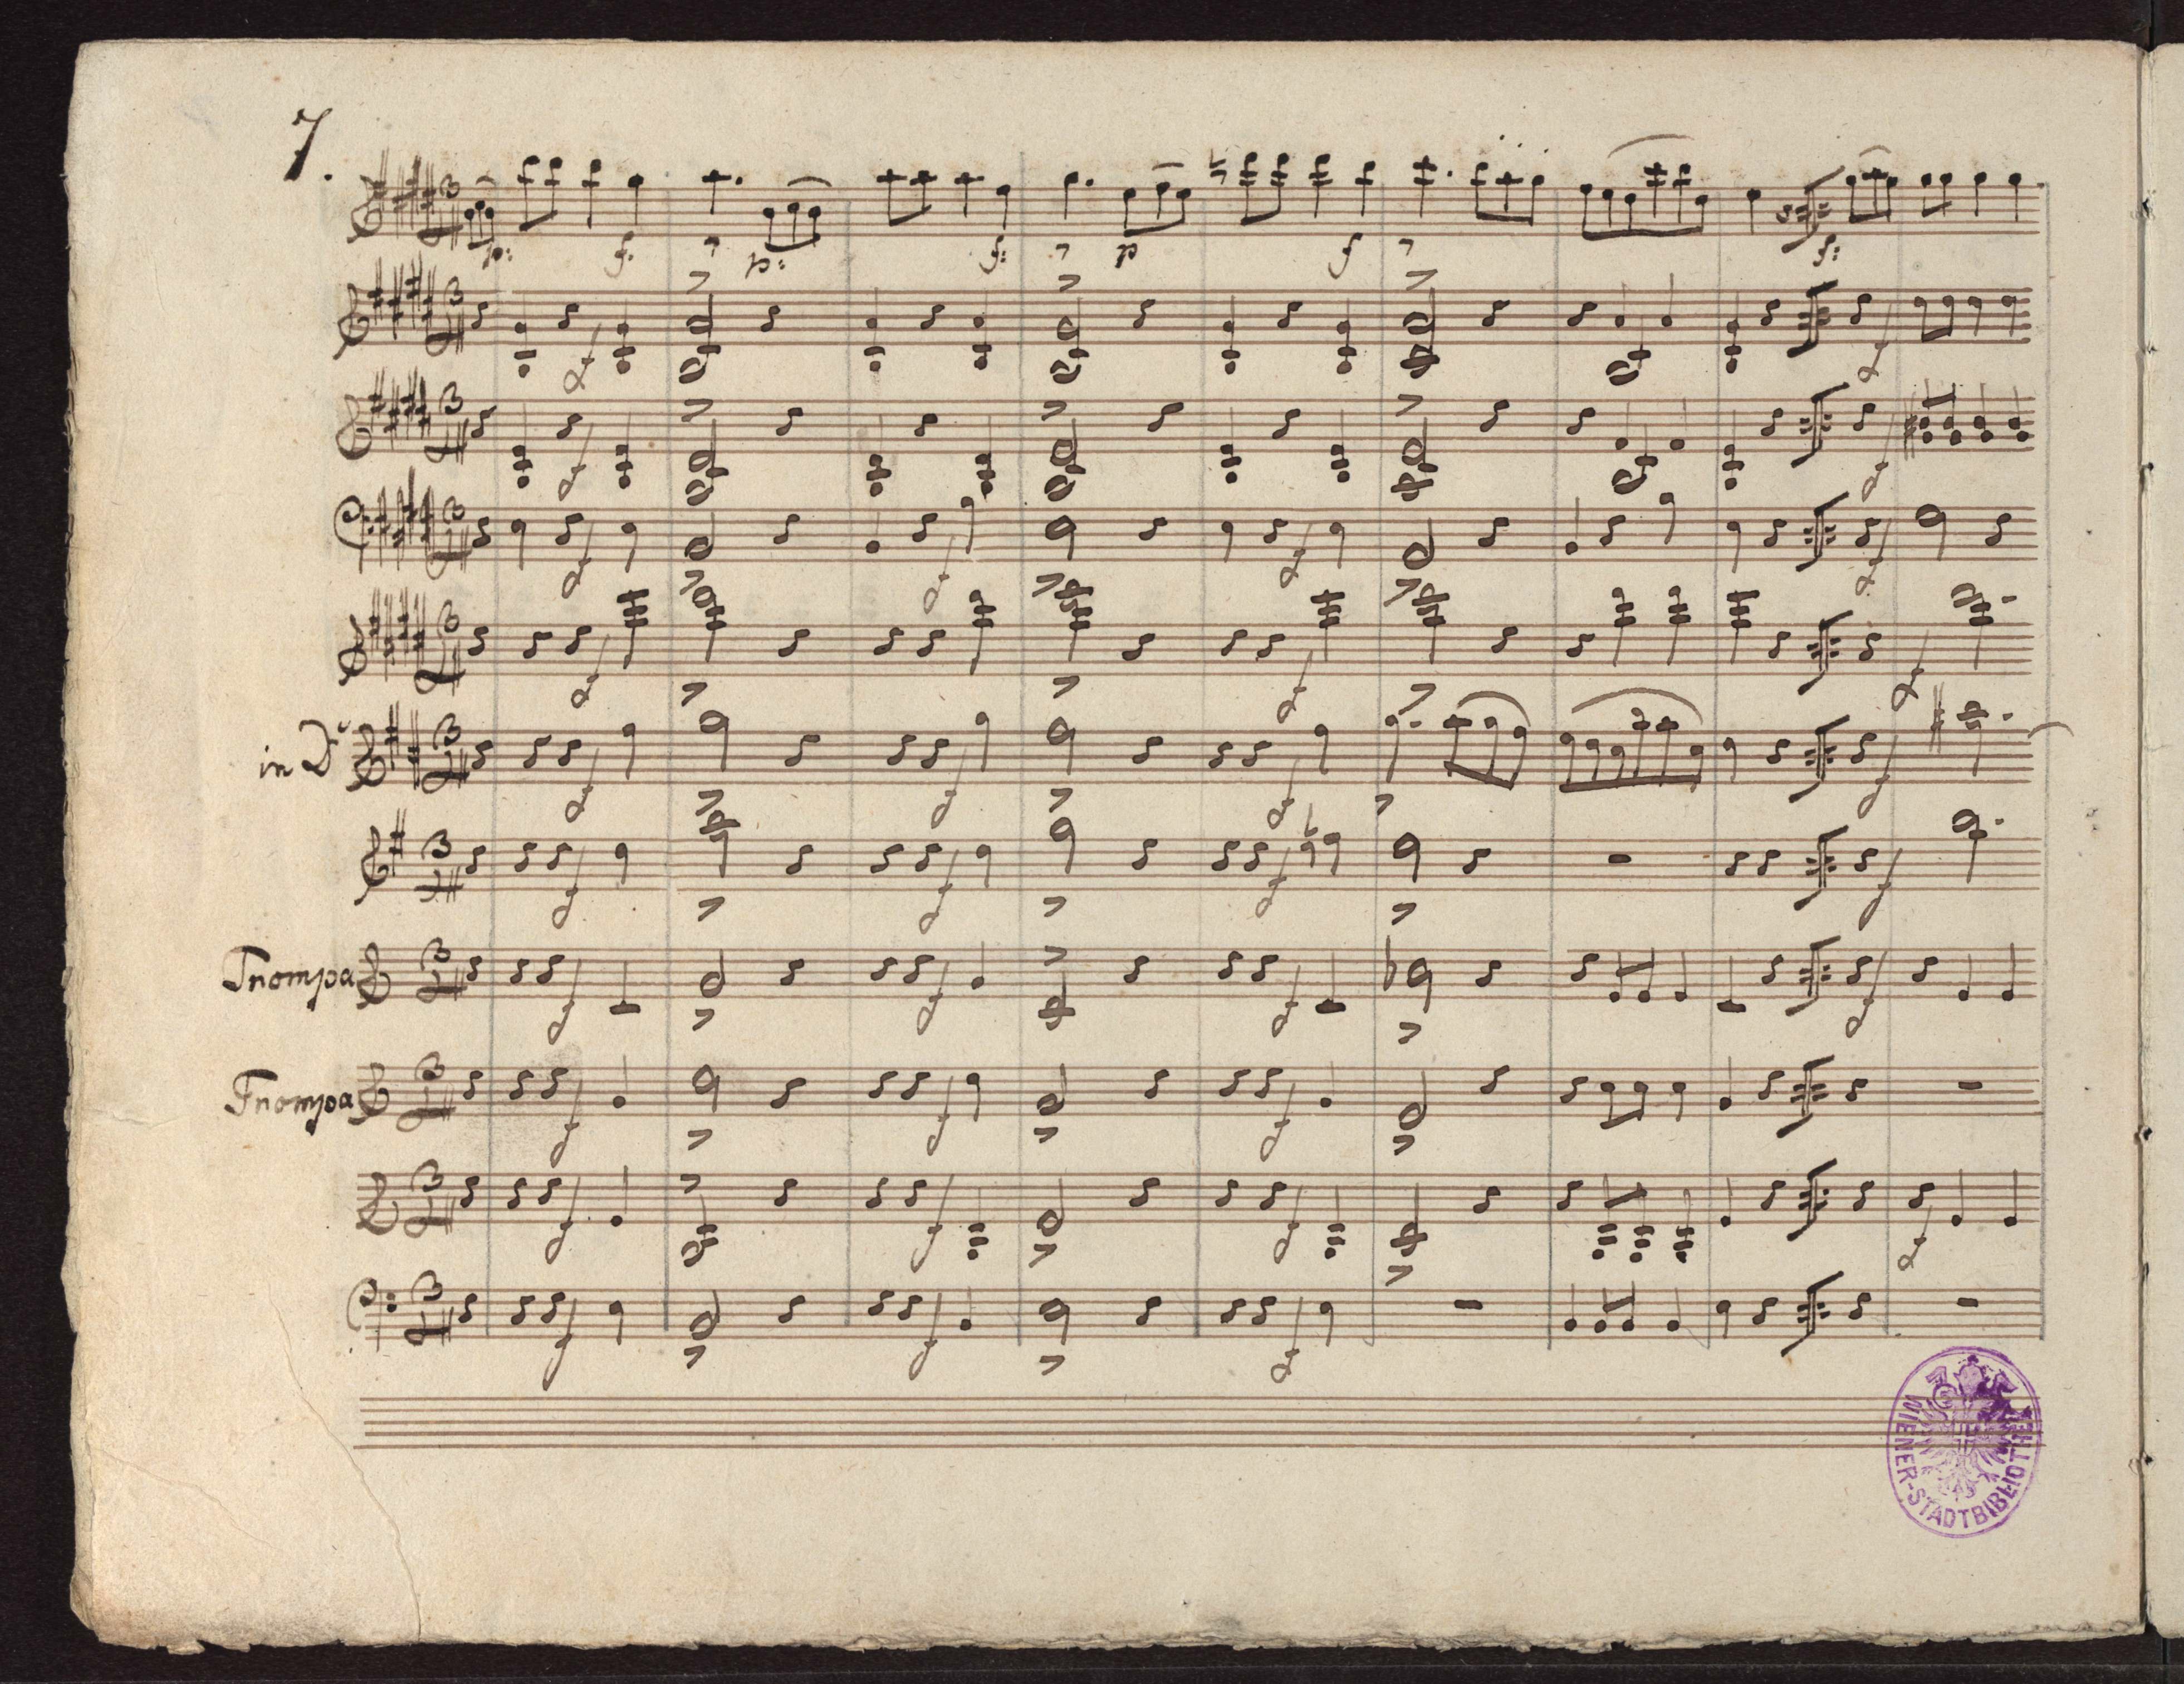 7.
p: f: p: f: p f f:
in D
Trompa
Trompa
WIENER-STADTBIBLIOTHEK